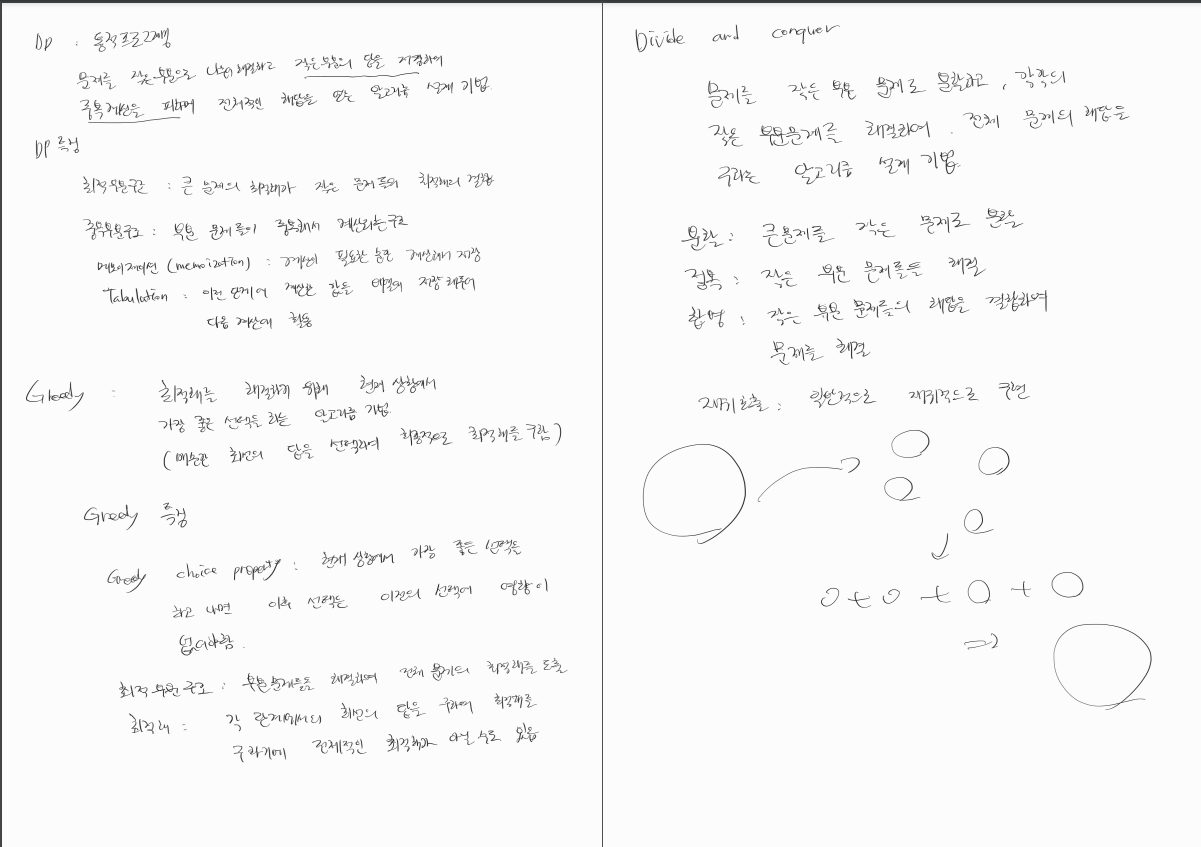 DP : 동적프로그래밍
문제를 작은 부분으로 나눠 해결하고 작은 부분의 답을 저장하여
중복계산을 피하며 전체적인 해답을 얻는 알고리즘 설계 기법.
DP 특징
최적부분구조 : 큰 문제의 최적해가 작은 문제들의 최적해의 결합
중복부분구조 : 부분 문제들이 중복해서 계산되는 구조
메모이제이션 (memoization) : 계산이 필요한 순간 계산해서 저장
Tabulation : 이전 단계에 계산한 값을 테이블에 저장 해두어
다음 계산에 활용
Greedy : 최적해를 해결하기 위해 현재 상황에서
가장 좋은 선택을 하는 알고리즘 기법.
(매순간 최선의 답을 선택하여 최종적으로 최적해를 구함)
Greedy 특징
Greedy choice property : 현재 상황에서 가장 좋은 선택을
하고 나면 이후 선택은 이전의 선택에 영향이
없어야함.
최적 부분 구조 : 부분문제들을 해결하며 전체 문제의 최적해를 도출
최적해 : 각 단계에서의 최선의 답을 구하여 최적해를
구하기에 전체적인 최적해가 아닐 수도 있음
Divide and conquer
문제를 작은 부분 문제로 분할하고, 각각의
작은 부분문제를 해결하여. 전체 문제의 해답을
구하는 알고리즘 설계 기법.
분할 : 큰문제를 작은 문제로 분할
정복 : 작은 부분 문제들을 해결
합병 : 작은 부분 문제들의 해답을 결합하여
문제를 해결
재귀호출 : 일반적으로 재귀적으로 구현